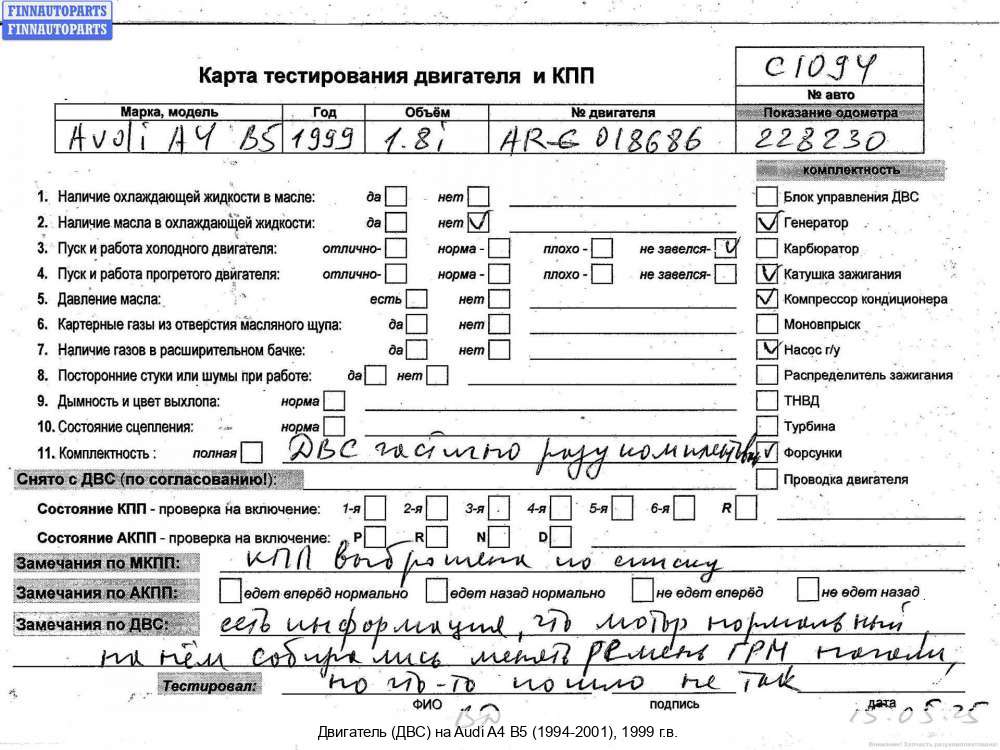 FINNAUTOPARTS
FINNAUTOPARTS
Карта тестирования двигателя и КПП
C1094
№ авто
Марка, модель Год Объём № двигателя Показание одометра
Avdi A4 B5 1999 1.8i ARG 018686 228230
комплектность
1. Наличие охлаждающей жидкости в масле: да нет Блок управления ДВС
2. Наличие масла в охлаждающей жидкости: да нет Генератор
3. Пуск и работа холодного двигателя: отлично- норма - плохо - не завелся- Карбюратор
4. Пуск и работа прогретого двигателя: отлично- норма - плохо - не завелся- Катушка зажигания
5. Давление масла: есть нет Компрессор кондиционера
6. Картерные газы из отверстия масляного щупа: да нет Моновпрыск
7. Наличие газов в расширительном бачке: да нет Насос г/у
8. Посторонние стуки или шумы при работе: да нет Распределитель зажигания
9. Дымность и цвет выхлопа: норма ТНВД
10. Состояние сцепления: норма Турбина
11. Комплектность : полная ДВС частично Форсунки
Снято с ДВС (по согласованию!): Проводка двигателя
Состояние КПП - проверка на включение: 1-я 2-я 3-я 4-я 5-я 6-я R
Состояние АКПП - проверка на включение: P R N D
Замечания по МКПП: КПП выброшена по списку
Замечания по АКПП: едет вперёд нормально едет назад нормально не едет вперёд не едет назад
Замечания по ДВС: есть информация, что мотор нормальный
на нём собирались менять ремень ГРМ начали,
Тестировал: но что-то пошло не так
ФИО подпись дата
15.05.25
Двигатель (ДВС) на Audi A4 B5 (1994-2001), 1999 г.в.